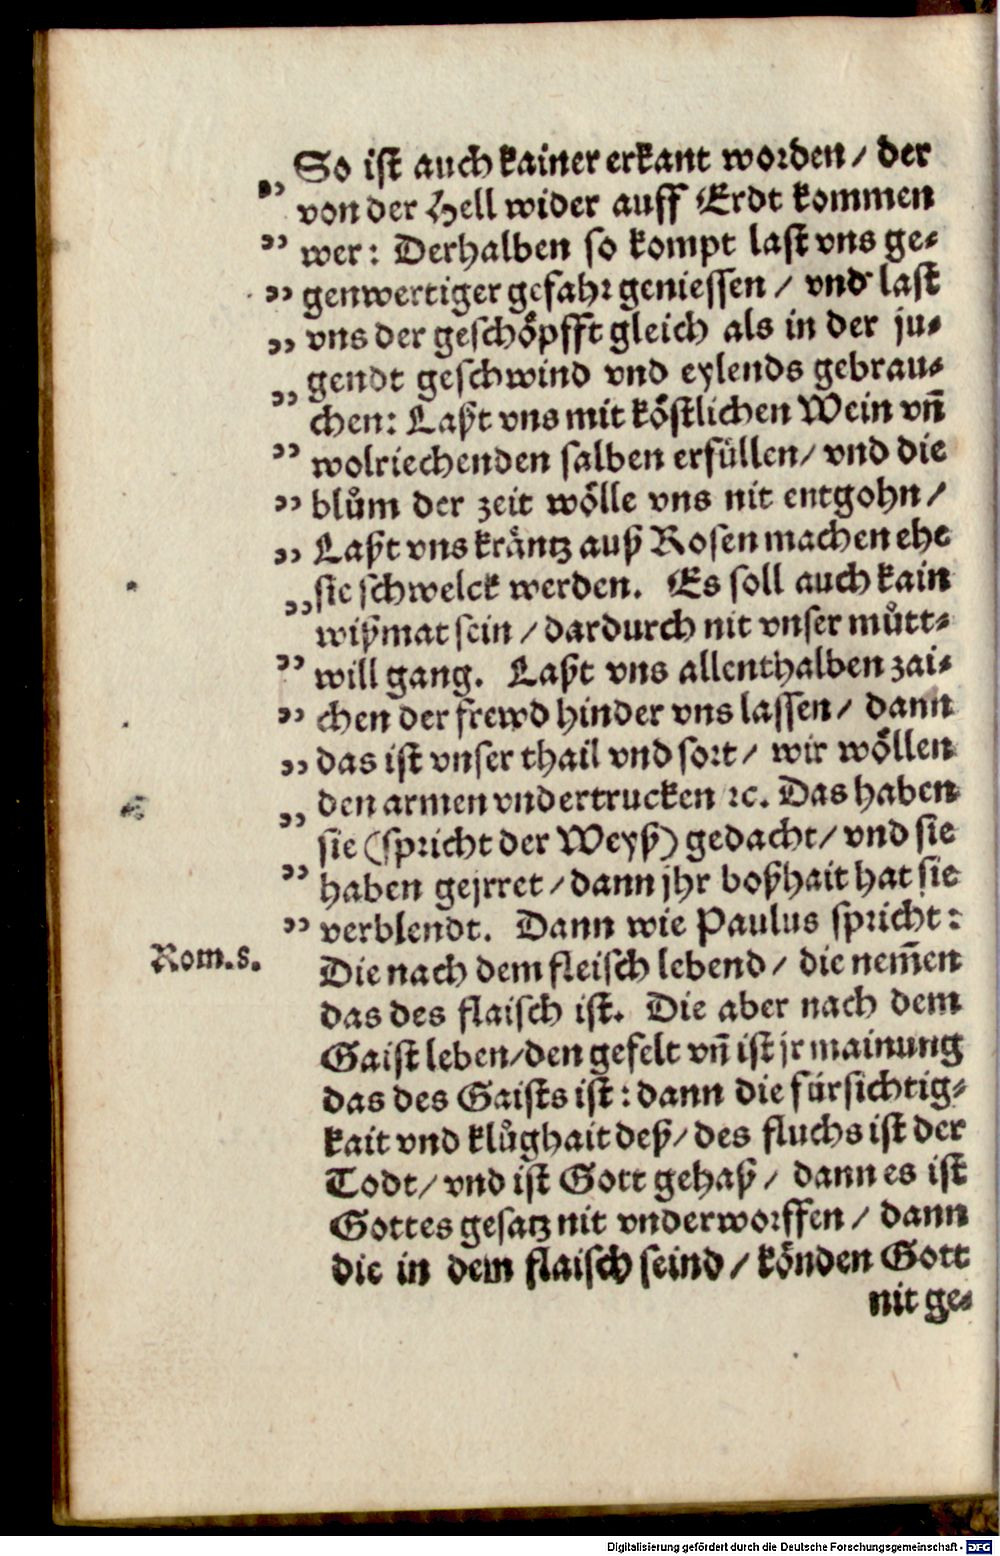 So ist auch kainer erkant worden / der
„ von der Hell wider auff Erdt kommen
„ wer: Derhalben so kompt last vns ge-
„ genwertiger gefahr geniessen / vnd last
„ vns der geschöpfft gleich als in der ju-
„ gendt geschwind vnd eylends gebrau-
chen: Laßt vns mit köstlichen Wein vñ
„ wolriechenden salben erfüllen/ vnd die
„ blům der zeit wölle vns nit entgohn /
„ Laßt vns kräntz auß Rosen machen ehe
„ sie schwelck werden. Es soll auch kain
wißmat sein / dardurch nit vnser můtt-
„ will gang. Laßt vns allenthalben zai-
„ chen der frewd hinder vns lassen / dann
„ das ist vnser thail vnd sort / wir wöllen
„ den armen vndertrucken ꝛc. Das haben
sie (spricht der Weyß) gedacht / vnd sie
„ haben gejrret / dann jhr boßhait hat sie
„ verblendt. Dann wie Paulus spricht:
Rom.8.
Die nach dem fleisch lebend / die nem̃en
das des flaisch ist. Die aber nach dem
Gaist leben/den gefelt vñ ist jr mainung
das des Gaists ist: dann die fürsichtig-
kait vnd klůghait deß/ des fluchs ist der
Todt / vnd ist Gott gehaß / dann es ist
Gottes gesatz nit vnderworffen / dann
die in dem flaisch seind / könden Gott
nit ge-
Digitalisierung gefördert durch die Deutsche Forschungsgemeinschaft - DFG